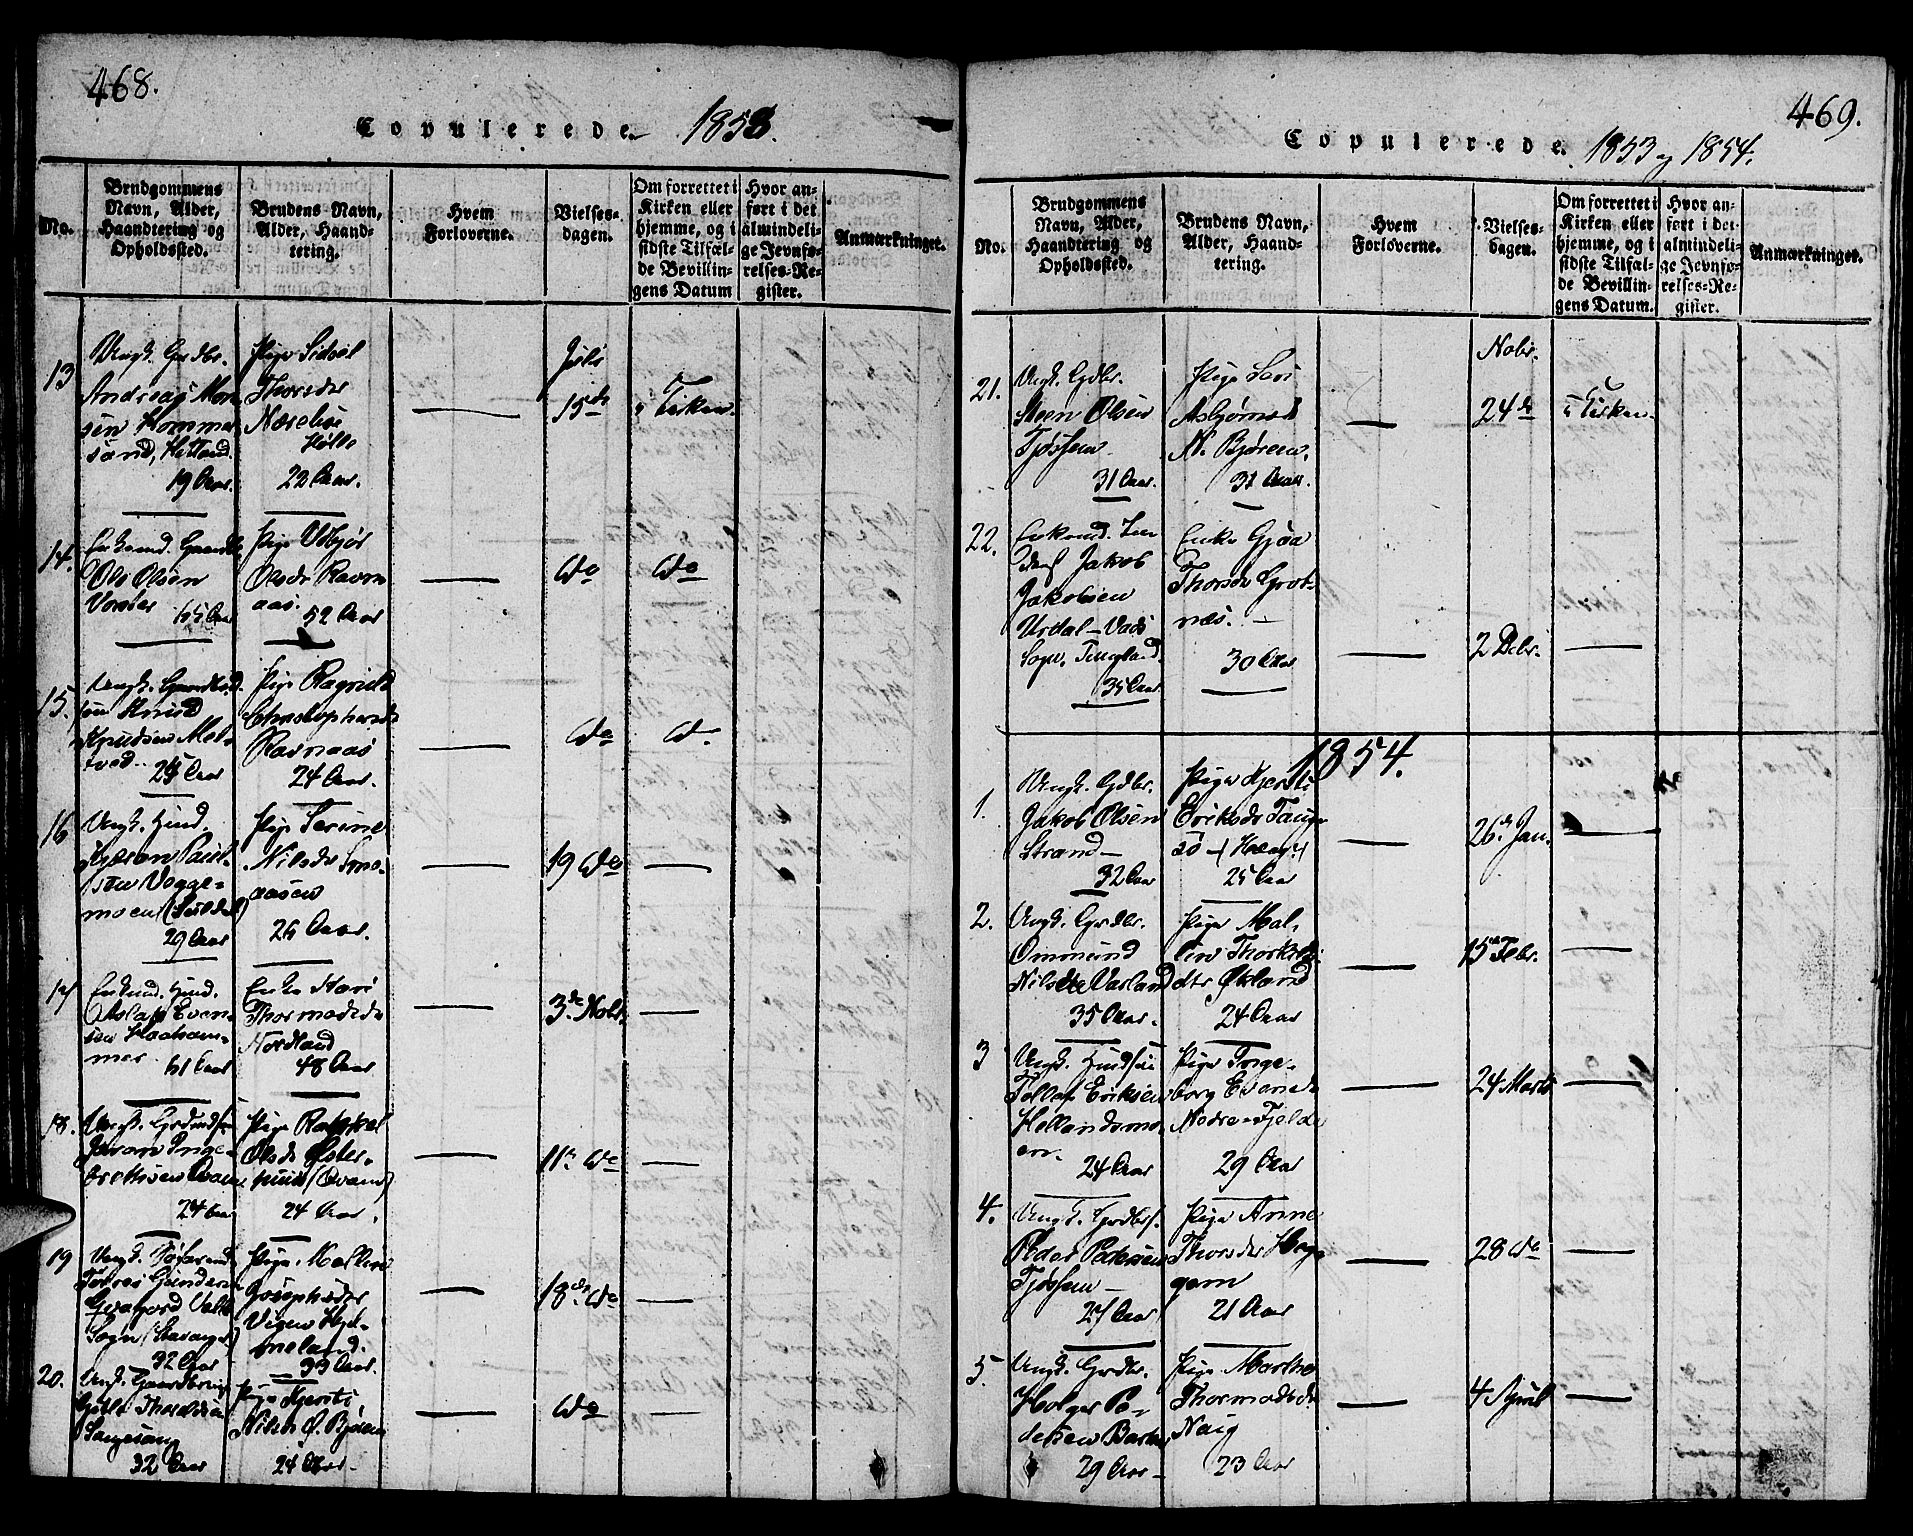 468.
Copulerede 1853.
No.
Brudgommens Navn, Alder, Haandtering og Opholdssted.
Brudens Navn, Alder, Haandtering.
Hvem Forloverne.
Vielsesdagen.
Om forrettet i Kirken eller hjemme, og i sidste Tilfælde Bevillingens Datum
Hvor anført i det almindelige Jevnførelses-Register.
Anmærkninger.
13
Ungk. Grdbr.
Andreas Mon
sen Hommer
sand, Hetland.
19 Aar.
Pige Sidsel
Thorsdtr
22 Aar.
Juli
15de
i Kirken.
14.
Enkemd.
Ole Olsen
65 Aar
Pige
Olsdtr Ravn
aas.
52 Aar
Do
Do
15.
Ungk.
Knud
Knudsen Mel-
tved.
Pige Ragnild
Christophersdtr
Ravnaas
24 Aar.
Do
Do
16
Ungk. Huusmd.
29 Aar
Pige Serine
Nilsdtr Smo-
aasen
26 Aar.
19 Do
17
Enkemd. Huusmd.
Aslak Even-
sen
61 Aar
Enke Kari
Thormodsdtr
Nordland
48 Aar
3de Nobr.
18.
Ungk.
Inge-
bretsen Qvam
24 Aar
Pige Rakkel
Olsdtr Øster-
huus (Qvam)
24 Aar.
11te Do
19
Ungk.
Tørres Gunders
Sogn (Stavanger)
32 Aar
Pige Mallene
Josephsdtr
Vigen Hjel-
meland.
33 Aar.
18de Do
20.
Ungk.
32 Aar
Pige Kjersti
24 Aar.
Do
469.
Copulerede. 1853 og 1854.
No.
Brudgommens Navn, Alder, Haandtering og Opholdssted.
Brudens Navn, Alder, Haandtering.
Hvem Forloverne.
Vielsesdagen.
Om forrettet i Kirken eller hjemme, og i sidste Tilfælde Bevillingens Datum.
Hvor anført i det almindelige Jevnførelses-Register.
Anmærkninger.
21.
Ungk. Gdbr.
Steen Olsen
Tjøssem
31 Aar.
Pige Seri
Asbjørnsd
N. Bjøreem.
31 Aar.
Nobr.
24de
i Kirken.
22.
Enkemd.
Jakob
Jakobsen
Urdal - Vads
Sogn, Tengland.
35 Aar.
Enke Gjøa
Thorsdtr Grot-
næs.
30 Aar
2 Debr.
1854.
1.
Ungk. Gdbr.
Jakob Olsen
Strand
32 Aar
Pige Kjersti
Eriksdtr
25 Aar
26de Jan.
2.
Ungk. Grdbr.
Ommund
Nilsen Varland
35 Aar.
Pige Mal-
lene Thorkils
dtr Økland
24 Aar
15de Febr.
3
Ungk.
Tollak Eriksen
Hellandsmo-
en.
24 Aar
Pige Inge-
borg Evensd
Nedre-Fjelde
29 Aar
24 Marts
4.
Ungk. Grdbr.
Peder Pedersen
Tjøssem
27 Aar
Pige Anne
Thorsdtr
21 Aar
28 Do
5.
Ungk. Grdbr.
Holger Pe-
dersen
29 Aar
Pige Marthe
Thormodsdtr
Naig
23 Aar
4 April